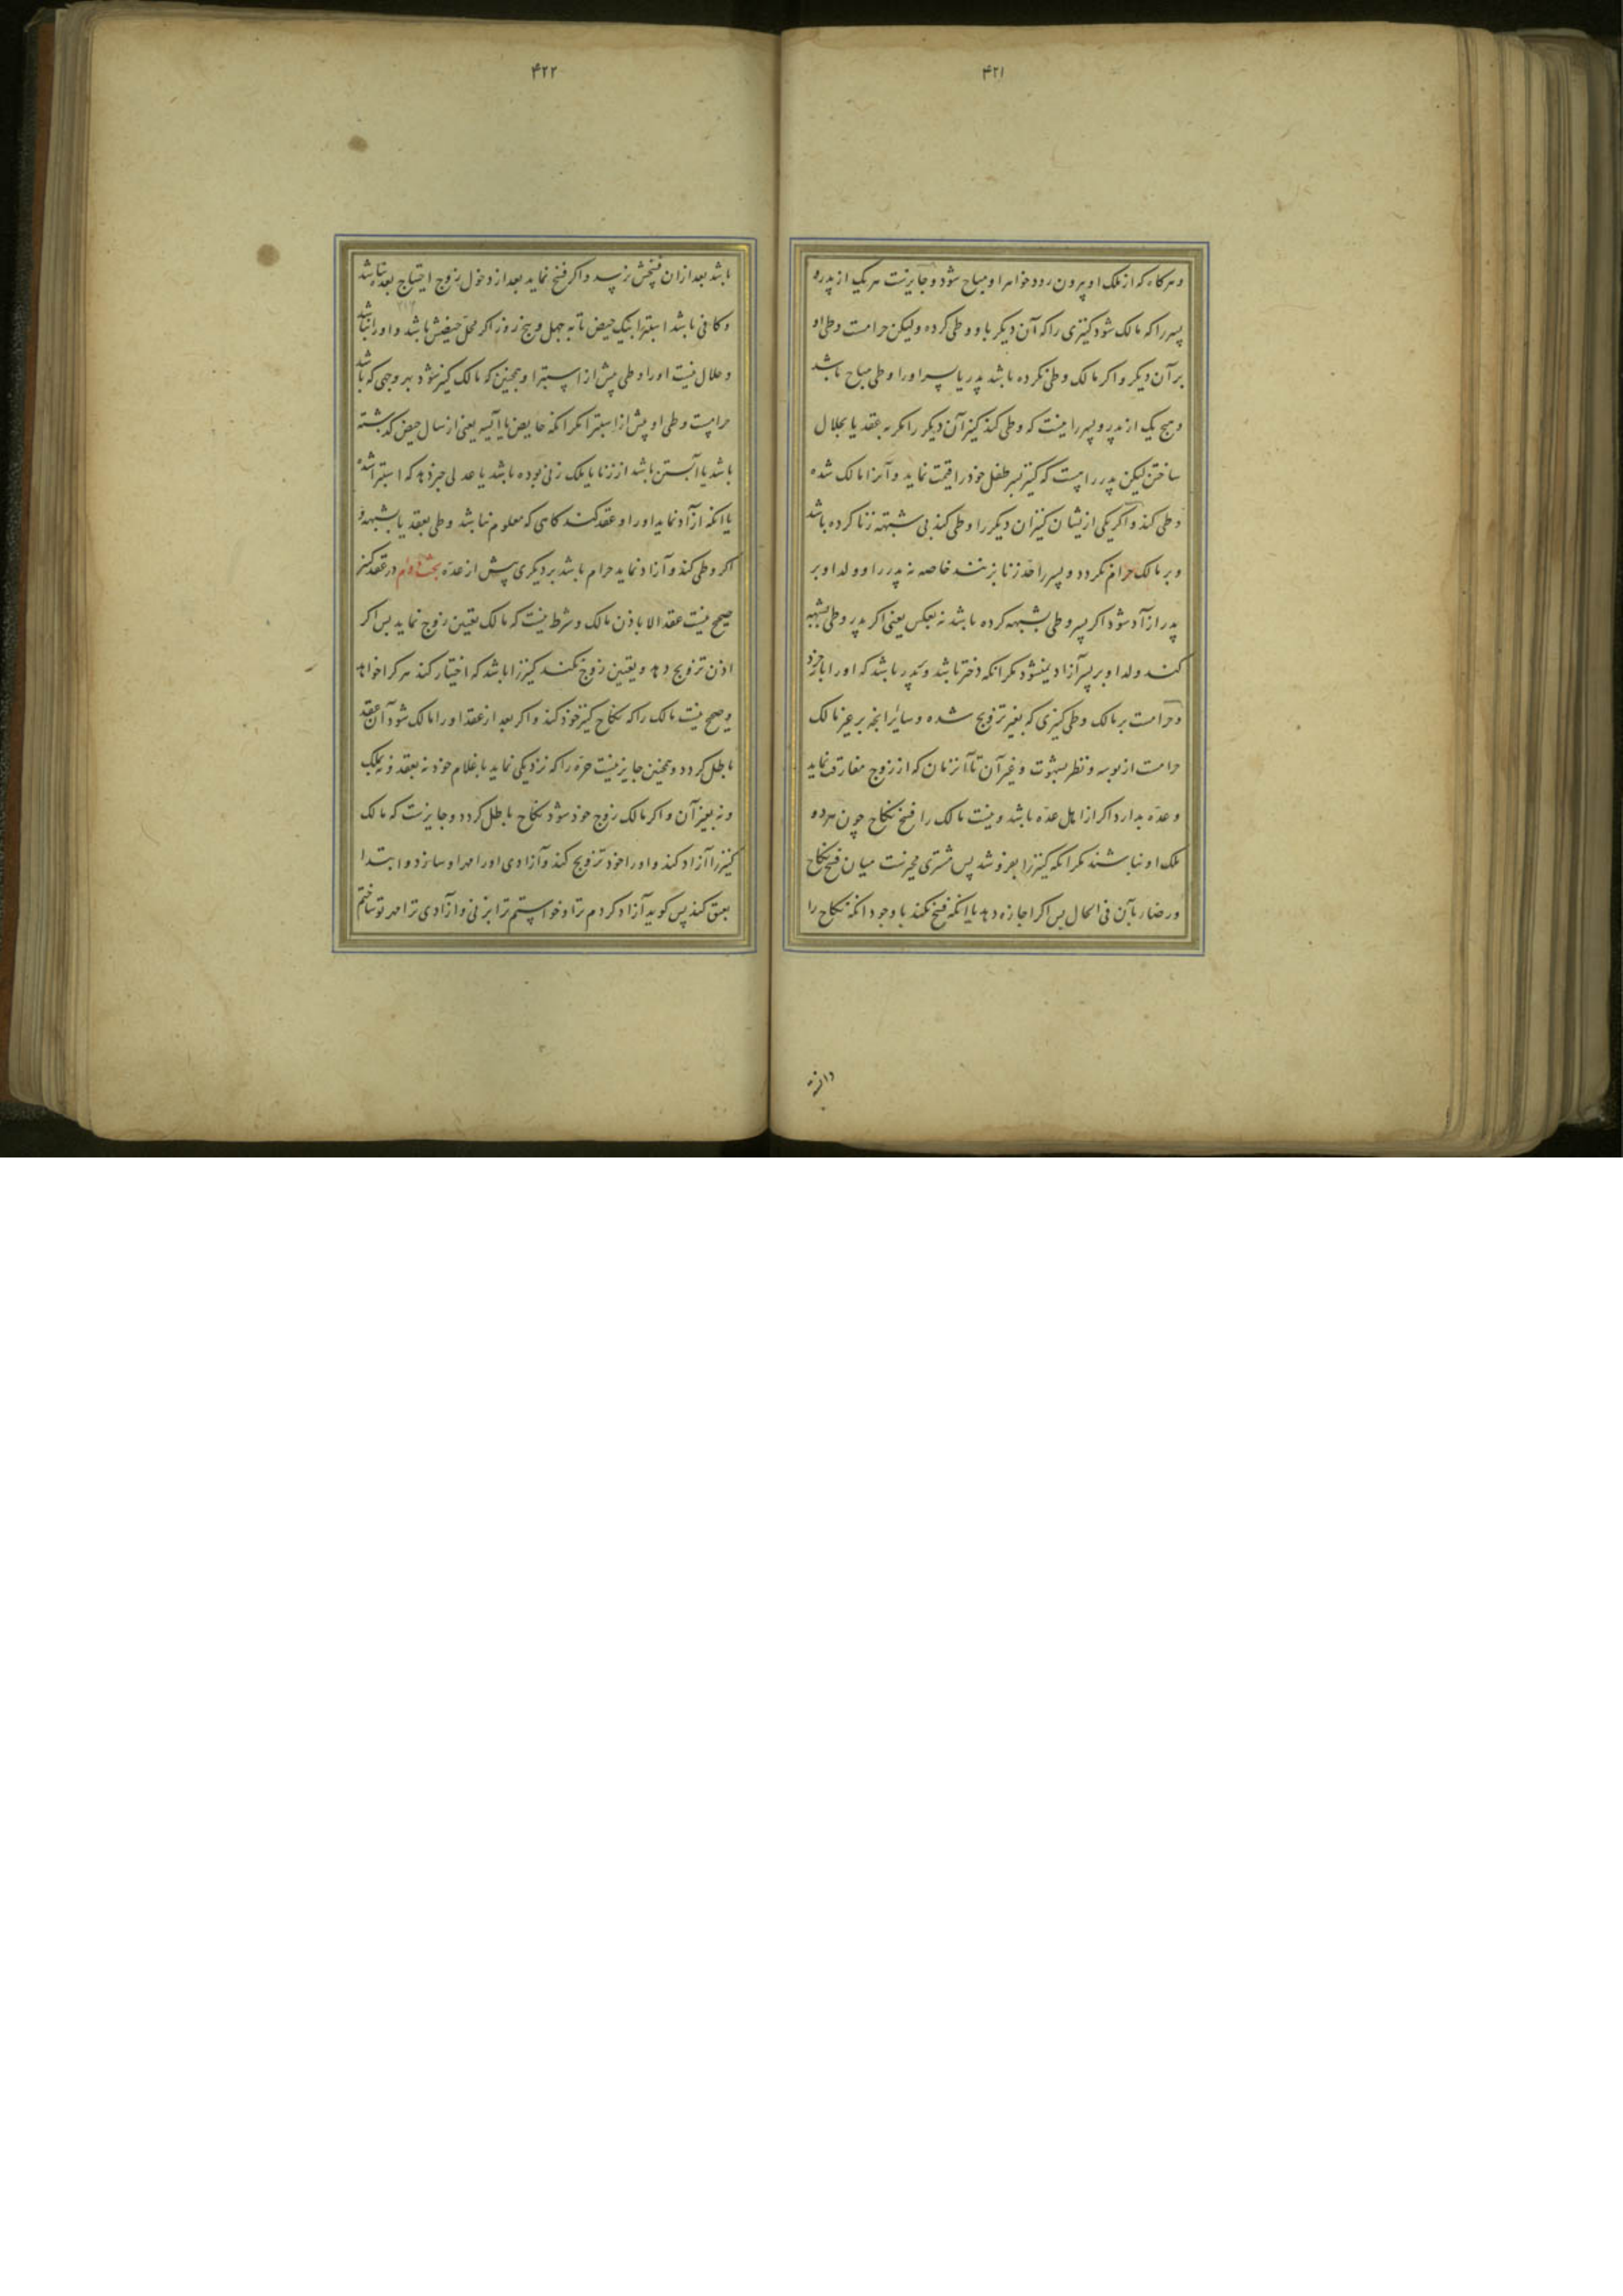 ۴۲۱
و هرکاه که از ملک او بیرون رود خواهر او مباح شود و جایزست هر یک از پدر و
پسر را که مالک شود کنیزی را که آن دیکر با او وطی کرده ولیکن حرامست وطی او
بر آن دیکر و اکر مالک وطی نکرده باشد پدر یا پسر او را وطی مباح باشد
و هیچ یک از پدر و پسر را نیست که وطی کند کنیز آن دیکر را مکر به عقد یا بحلال
ساختن لیکن پدر راست که کنیز پسر طفل خود را قیمت نماید و آنرا مالک شده
وطی کند و اکر یکی ازیشان کنیزان دیکر را وطی کند بی شبهه زنا کرده باشد
و بر مالک حرام نکردد و پسر را حد زنا بزنند خاصه نه پدر را و ولد او بر
پدر آزاد شود اکر پسر وطی بشبهه کرده باشد نه بعکس یعنی اکر پدر وطی بشبهه
کند ولد او بر پسر آزاد نمیشود مکر انکه دختر باشد و پدر باشد که او را باز خرد
و حرامست بر مالک وطی کنیزی که بغیر تزویج شده و سائر انچه بر غیر مالک
حرامست از بوسه و نظر بشهوت و غیر آن تا آنزمان که از زوج مفارقت نماید
و عده بدارد اکر از اهل عده باشد و نیست مالک را فسخ نکاح چون هر دو
ملک او نباشند مکر انکه کنیز را بفروشد پس مشتری مخیرست میان فسخ نکاح
و رضا بآن فی الحال پس اکر اجازه دهد یا انکه فسخ نکند با وجود انکه نکاح را
دانسته
۴۲۲
باشد بعد ازان فسخش نرسد و اکر فسخ نماید بعد از دخول زوج احتیاج بعده نباشد
و کافی باشد استبرا بیک حیض تا به چهل و پنج روز اکر محل حیضش باشد و او را نباشد
و حلال نیست او را وطی پیش از استبرا و همچنین که مالک کنیز شود بهر وجهی که باشد
حرامست وطی او پیش از استبرا مکر انکه حایض یا آیسه یعنی از سال حیض کدشته
باشد یا آبستن باشد از زنا یا ملک زنی بوده باشد یا عدلی خبر دهد که استبرا شده
یا انکه آزاد نماید او را و عقد کند کاهی که معلوم نباشد وطی بعقد یا بشبهه و
اکر وطی کند و آزاد نماید حرام باشد بر دیکری پیش از عده بحث دوام در عقد کنیز
صحیح نیست عقد الا باذن مالک و شرط نیست که مالک تعیین زوج نماید پس اکر
اذن تزویج دهد و تعیین زوج نکند کنیز را باشد که اختیار کند هر کرا خواهد
و صحیح نیست مالک را که نکاح کنیز خود کند و اکر بعد از عقد او را مالک شود آن عقد
باطل کردد و همچنین جایز نیست حره را که نزدیکی نماید با غلام خود نه بعقد و نه بملک
و نه بغیر آن و اکر مالک زوج خود شود نکاح باطل کردد و جایزست که مالک
کنیز را آزاد کند و او را خود تزویج کند و آزادی او را مهر او سازد و ابتدا
بعتق کند پس کوید آزاد کردم ترا و خواستم ترا بزنی و آزادی ترا مهر تو ساختم